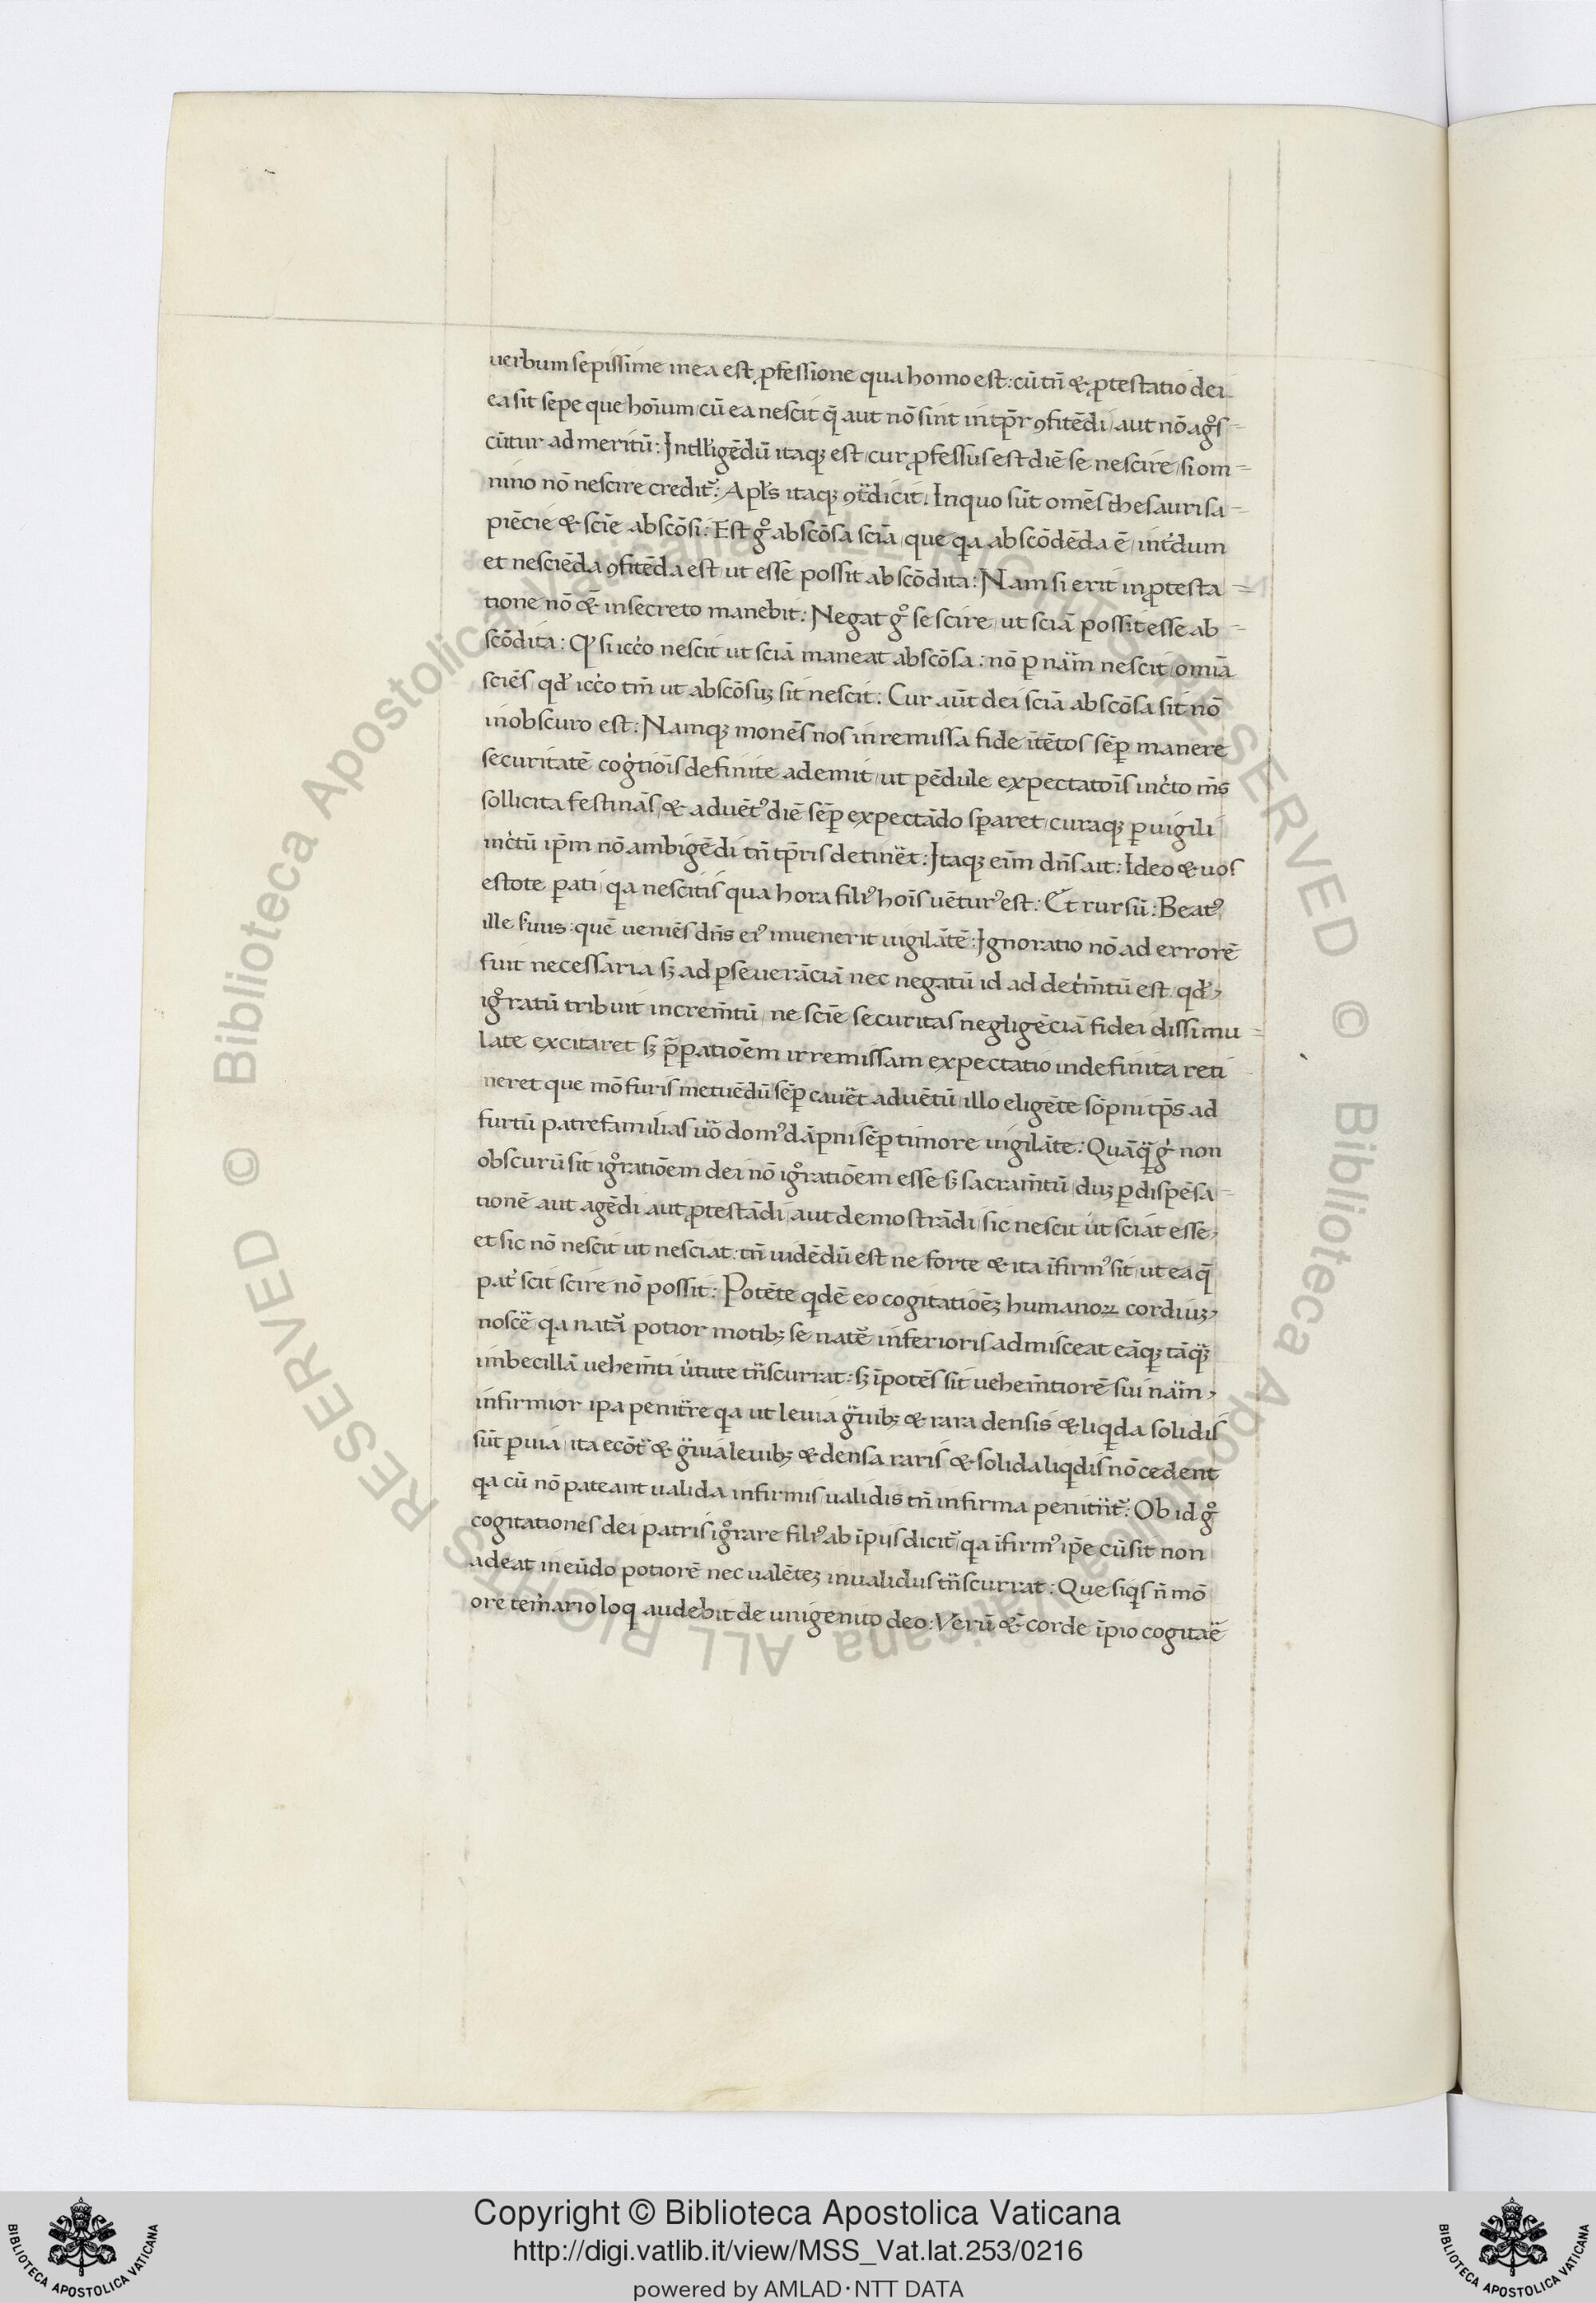 uerbum sepissime in ea est ꝓfessione qua homo est: cū tñ & ꝓtestatio dei
ea sit sepe que hoīum cū ea nescit q̄ aut nō sint in tp̄r ꝯfitēdi aut nō ag̊s-
cūtur ad meritū: Intll'igēdū itaqꝫ est cur ꝓfessus est diē se nescire si om-
nino nō nescire credit᷑: Apl's itaqꝫ ꝯt̃dicit. In quo sūt omēs thesauri sa-
piēcie & scīe abscōsi: Est g̊ abscōsa scīa que qa abscōdēda ē int'dum
et nesciēda ꝯfitēda est ut esse possit abscōdita: Nam si erit in ꝓtesta-
tione nō &̄ in secreto manebit: Negat g̊ se scire ut scīa possit esse ab-
scōdita: Qꝰ si icc'o nescit ut scīa maneat abscōsa: nō ꝑ nãm nescit omīa
sciēs qd' icc'o tm̄ ut abscōsuꝫ sit nescit: Cur aūt dei scīa abscōsa sit nō
in obscuro est: Namqꝫ monēs nos in remissa fide ītētos sēꝑ manere
securitatē cog'tiōis definite ademit ut pēdule expectatōis inc'to m̄s
sollicita festinās & aduētꝰ diē sēꝑ expectādo sꝑaret curaqꝫ ꝑuigili
inc'tū ip̄m nō ambigēdi tñ tp̄ris detin̄et: Itaqꝫ eīm dn̄s ait: Ideo & uos
estote ꝑati qa nescitis qua hora filiꝰ hoīs uēturꝰ est: Et rursū: Beatꝰ
ille s'uus: quē ueniēs dn̄s eiꝰ inuenerit uigilātē: Ignoratio nō ad errorē
fuit necessaria sꝫ ad ꝑseuerāciā nec negatū id ad det'm̄tū est qd'
ig̊ratū tribuit increm̄tū ne scīe securitas negligēciā fidei dissimu-
late excitaret sꝫ p̄ꝑatiōem irremissam expectatio indefinita reti
neret que mō furis metuēdū sēꝑ cauēt aduētū illo eligēte sōpni tp̄s ad
furtū patrefamilias uō domꝰ dāpni sēꝑ timore uigilāte: Quāq̄ g' non
obscurū sit ig̊ratiōem dei nō ig̊ratiōem esse sꝫ sacram̄tū duꝫ ꝑ dispēsa-
tionē aut agēdi aut ꝓtestādi aut demostrādi sic nescit ut sciat esse
et sic nō nescit ut nesciat: tñ uidēdū est ne forte & ita īfirmꝰ sit ut ea q̄
pat' scit scire nō possit: Potēte qdē eo cogitatiōeꝫ humanoꝝ cordiuꝫ
noscē qa natã potior motibꝫ se natē inferioris admisceat eāqꝫ tāq̄
imbecillā uehem̄ti u'tute tñscurrat: sꝫ īpotēs sit uehem̄tiorē sui nãm
infirmior ipa penit̃re qa ut leuia g̃uibꝫ & rara densis & liqda solidis
sūt ꝑuia ita ecōt̃ & g̃uia leuibꝫ & densa raris & solida liqdis nō cedent
qa cū nō pateant ualida infirmis ualidis tñ infirma penitñt᷑: Ob id g̊
cogitationes dei patris ig̊rare filiꝰ ab īpijs dicit᷑ qa īfirmꝰ ip̄e cū sit non
adeat ineūdo potiorē nec ualēteꝫ inualidus tñscurrat: Que siqs ñ mō
ore tem'ario loq audebit de unigenito deo: Verū &̄ corde īpio cogitaē
Copyright © Biblioteca Apostolica Vaticana
http://digi.vatlib.it/view/MSS_Vat.lat.253/0216
powered by AMLAD·NTT DATA